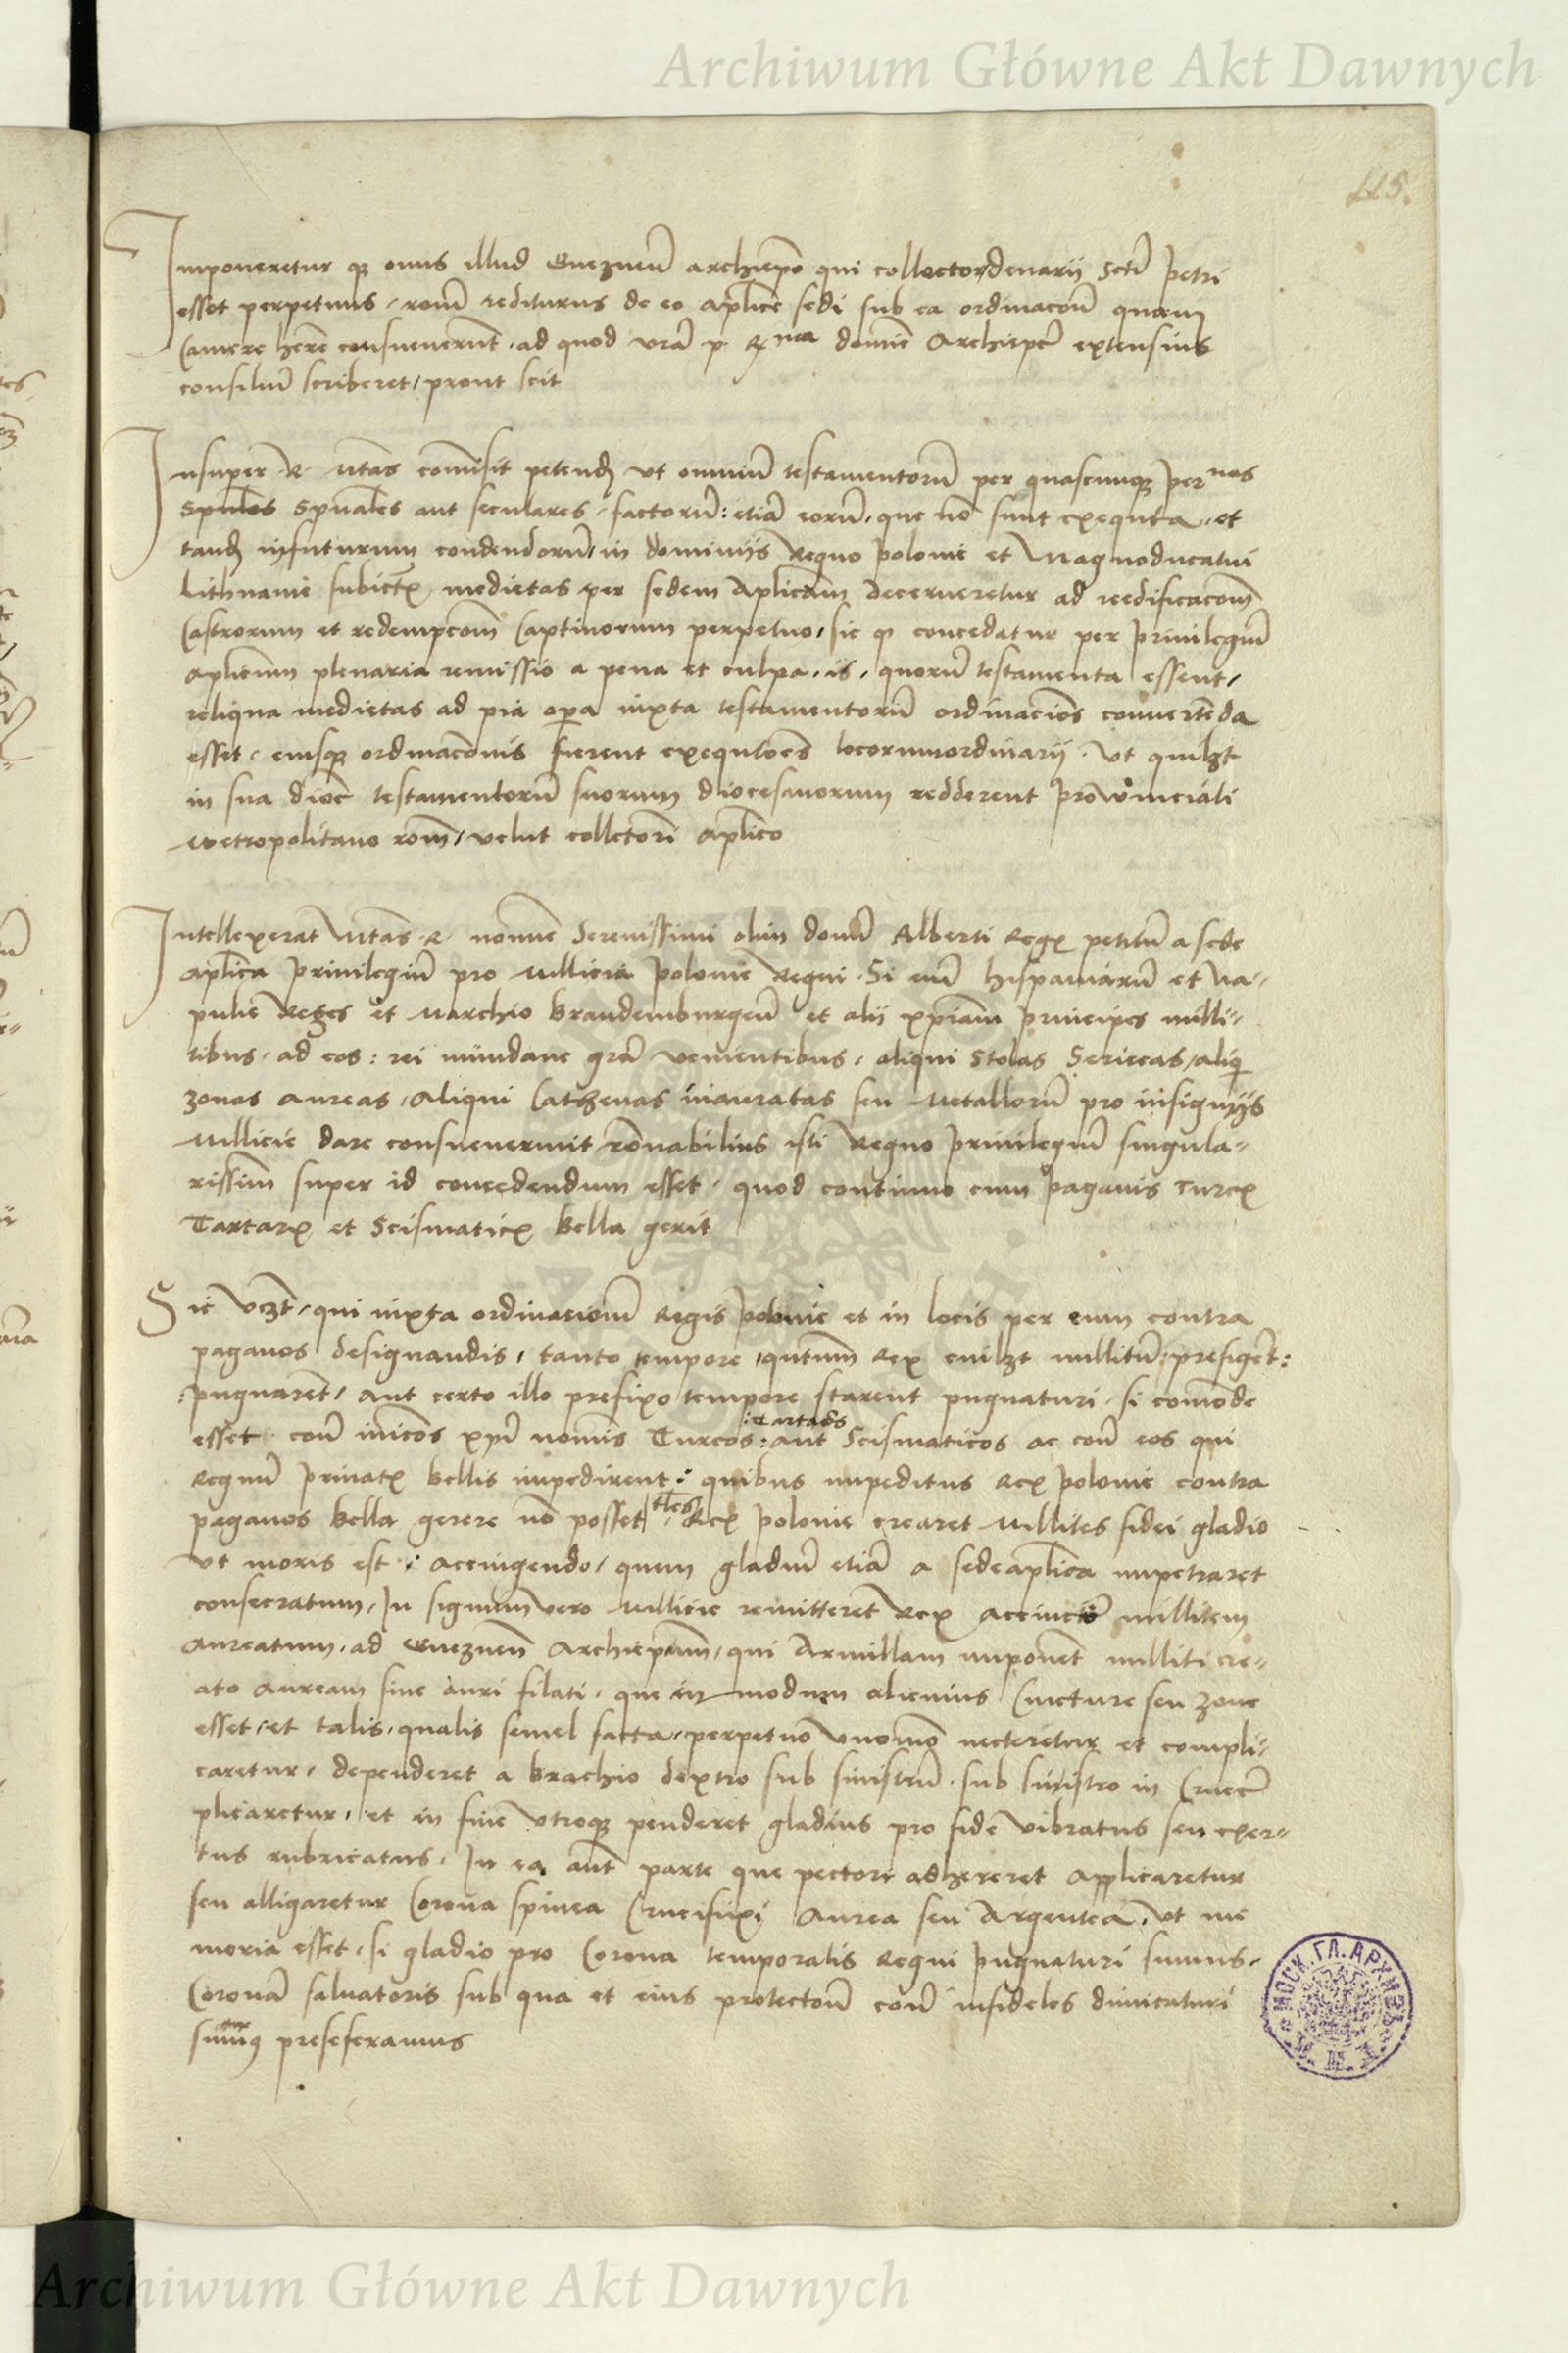 Archiwum Główne Akt Dawnych
115.
Imponeretur qz onus illud Gneznen̄ archiep̄o qui collector denarij Sctī Petri
esset perpetuus, ron̄m redditurus de eo aplice sedi sub ea ordinacōn̄ quam
Camere hēre consueuerunt, ad quod vrā p. Rma domīe Archiep̄e extensius
consiliū scriberet, prout scit
Insuper R. Mtas comīsit petend̄ vt omniū testamentorū per quascunqz personas
Spuales aut seculares factorū: etiā eorū, que nō sunt exequta, et
tand̄ in futurum condendorū, in dominijs Regno Polonie et Magnoducatui
Lithuanie subiectꝭ medietas per sedem Aplicam decerneretur ad reedificacōm
Castrorum et redempcōm Captiuorum perpetuo, sic qꝫ concedatur per priuilegiū
aplicum plenaria remissio a pena et culpa, is, quorū testamenta essent,
reliqua medietas ad pia opa iuxta testamentorū ordinaciōs conuertēda
esset, eiusqz ordinacōnis fierent exequtōes locorum ordinarij. Vt quilzt
in sua dioc̄ testamentorū suorum diocesanorum redderent prouinciali
Metropolitano rōm, velut collectori aplico
Intellexerat Mtas R. nomīe Serenissimi olim domī Alberti Regꝭ petitū a sede
aplica priuilegiū pro Millicia Polonie Regni. Si eni͂ hispaniarū et Na-
pulie Reges et Marchio Brandemburgen̄ et alij xpiam̄ principes milli-
tibus, ad eos: rei mundane grā venientibus, aliqui Stolas Sericeas, aliqi
zonas aureas, Aliqui Cathenas inauratas seu Metallorū pro insignijs
Millicie dare consueuerunt rōnabilius isti Regno priuilegiū singula-
rissim̄ super id concedendum esset, quod continuo cum paganis Turcꝭ
Tartarꝭ et Scismaticꝭ bella gerit
Sic vczt, qui iuxta ordinacionē Regis Polonie et in locis per eum contra
paganos designandis, tanto tempore, qntum Rex cuilzt millitū: presigeret:
:pugnarent, aut certo illo prefixo tempore starent pugnaturi, si comōde
esset, con̄ inicos xpī nomīs Turcos :Tartaros aut Scismaticos ac con̄ eos qui
Regnū priuatꝭ bellis impedirent: quibus impeditus Rex Polonie contra
paganos bella gerere nō posset, tles Rex Polonie crearet Millites fidei gladio
vt moris est: accingendo, quem gladiū etiā a sede aplica impetraret
consecratum, In signum vero Millicie remitteret Rex accinctū millitem
aureatum, ad Gneznen̄ Archiep̄um, qui Armillam imponeret milliti cre-
ato auream siue auri filati, que in modum alicuius Cincture seu zone
esset, et talis, qualis semel facta, perpetuo vnomō necteretur et compli-
caretur, dependeret a brachio dextro sub sinistrū. sub sinistro in Crucem
plicaretur, et in fine vtroqz penderet gladius pro fide vibratus seu exer-
tus rubricatus, In ea aut̄ parte que pectori adhereret applicaretur
seu alligaretur Corona spinea Crucifixi Aurea seu Argentea, vt me
moria esset, si gladio pro Corona temporalis Regni pugnaturi sumus,
Coronā saluatoris sub qua et eius protectōn̄ con̄ infideles dimicaturi
sumus preseferamus
МОСК. ГЛ. АРХИВЪ
Archiwum Główne Akt Dawnych